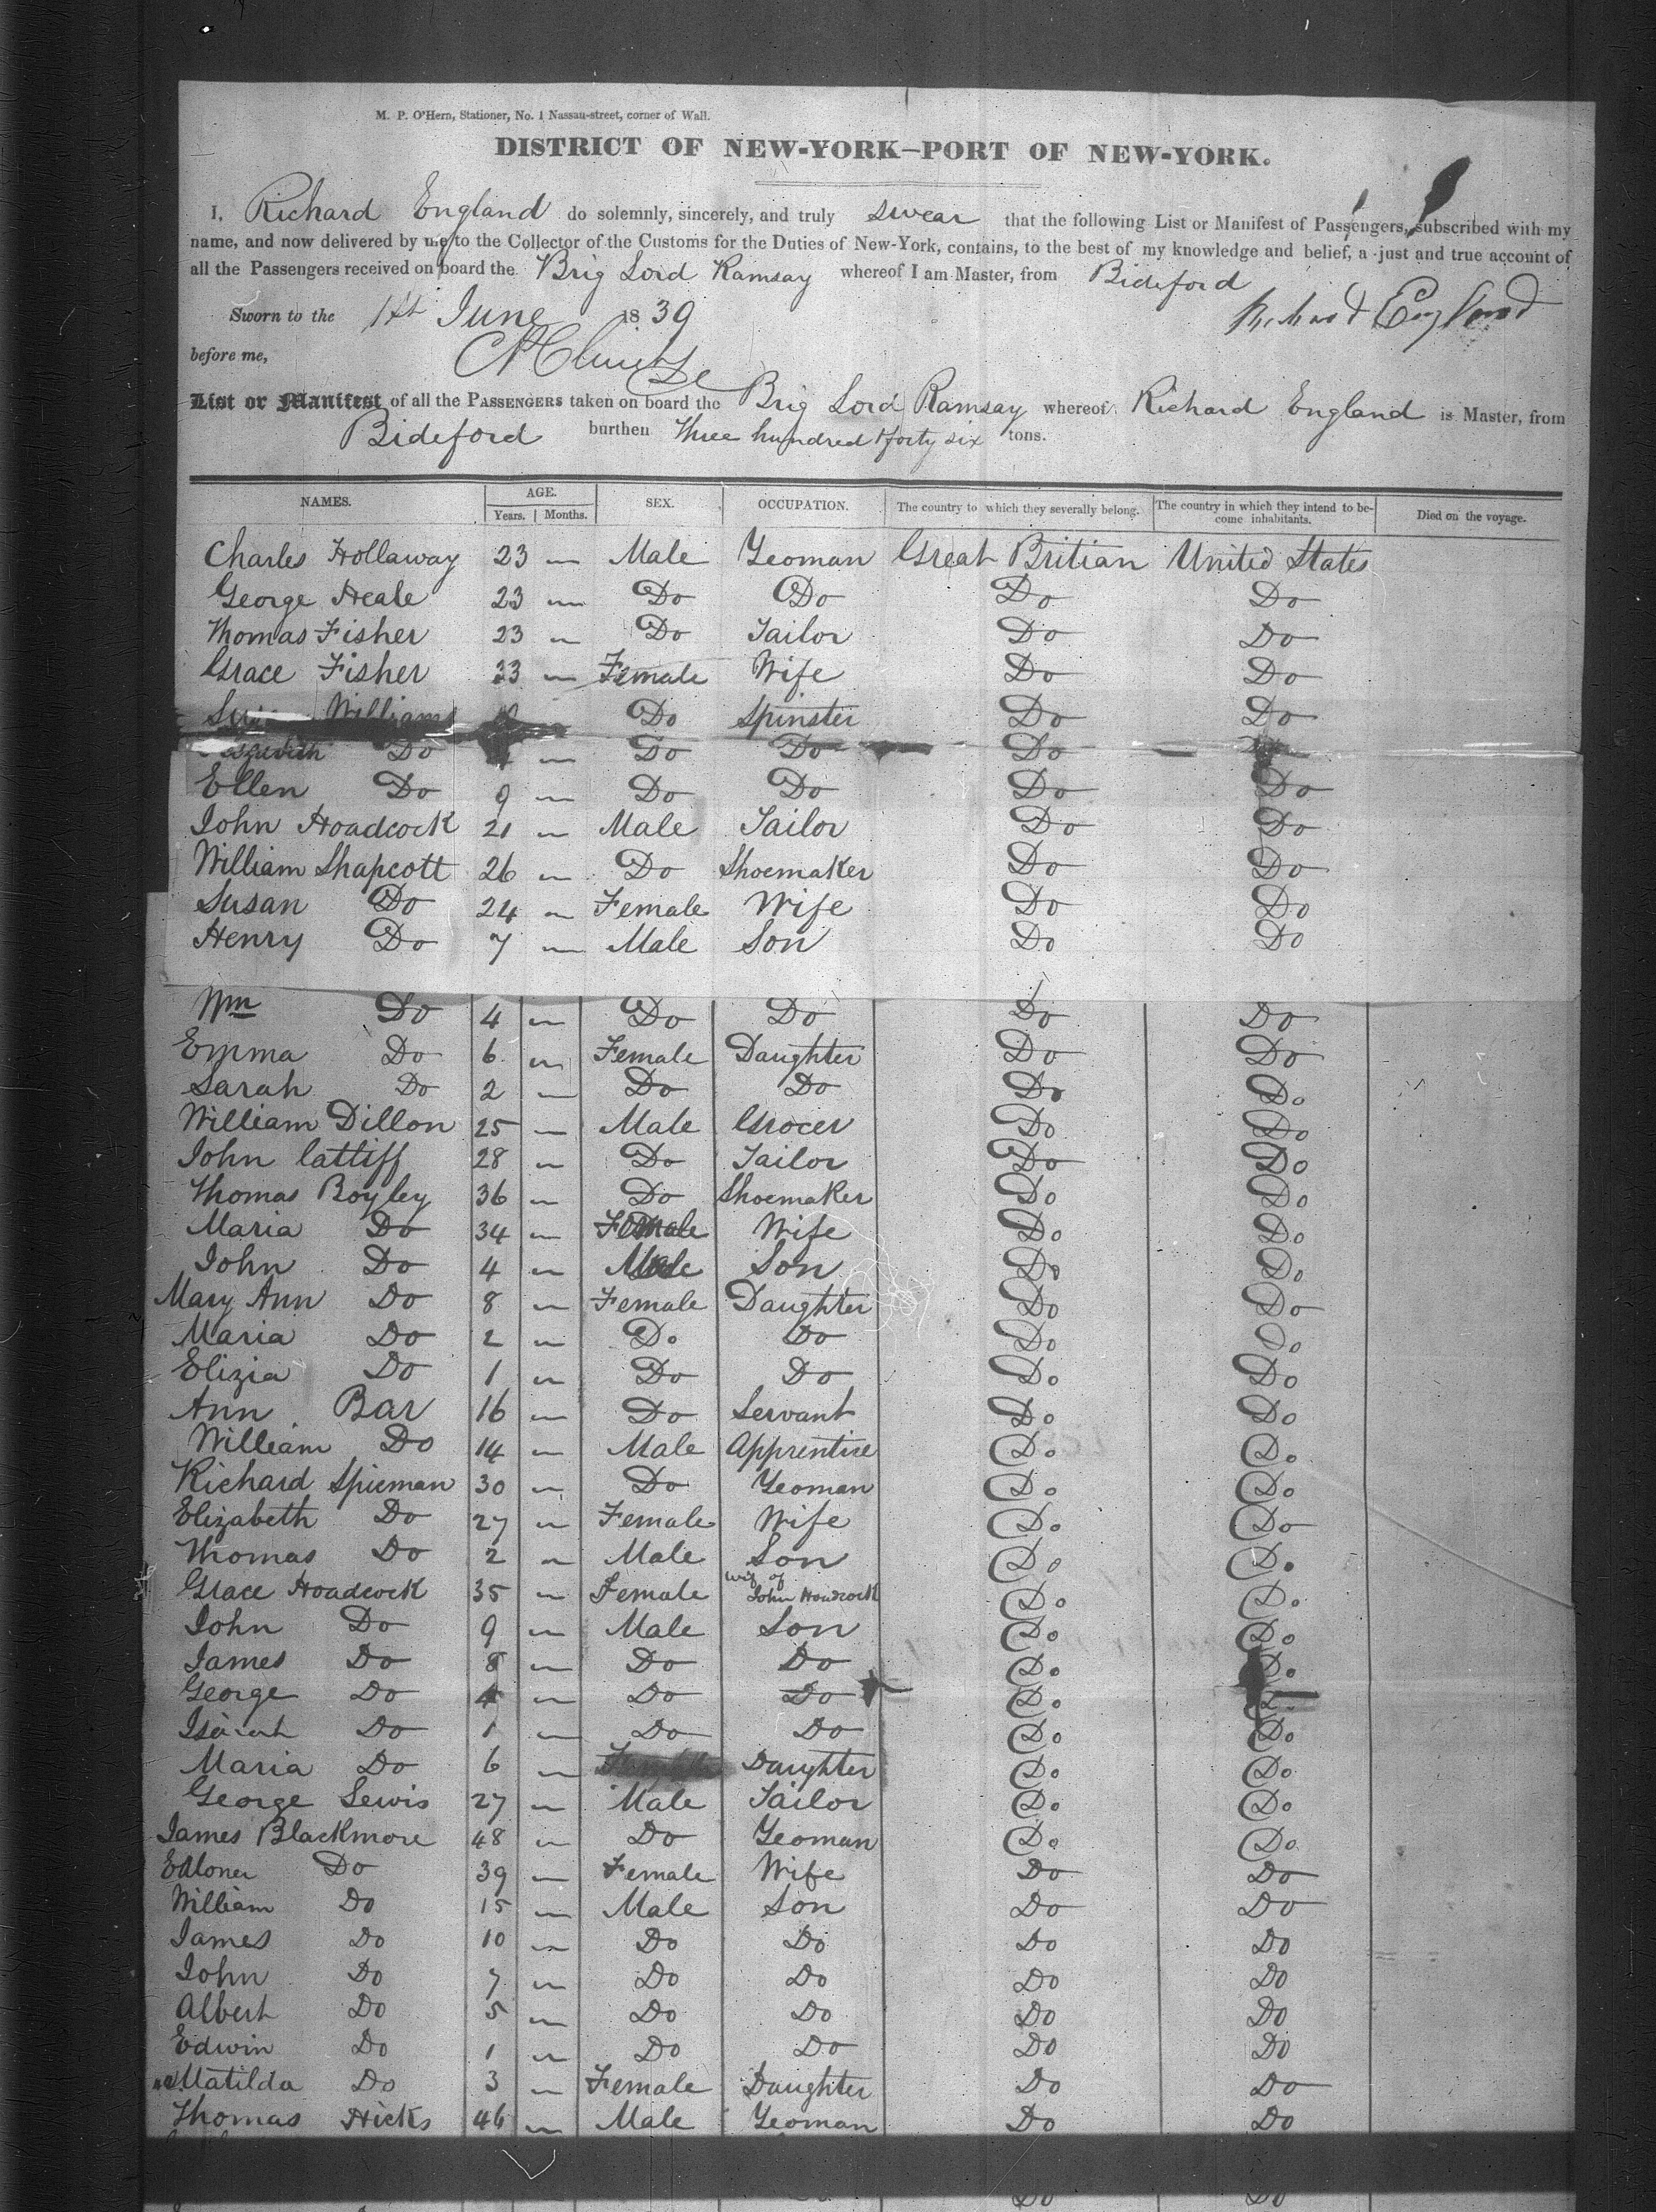 M. P. O'Hern, Stationer, No. 1 Nassau-street, corner of Wall.
DISTRICT OF NEW-YORK—PORT OF NEW-YORK.
I, Richard England do solemnly, sincerely, and truly swear that the following List or Manifest of Passengers, subscribed with my
name, and now delivered by me to the Collector of the Customs for the Duties of New-York, contains, to the best of my knowledge and belief, a just and true account of
all the Passengers received on board the Brig Lord Ramsay whereof I am Master, from Bideford
Sworn to the 1st June 1839 Richard England
before me,
List or Manifest of all the PASSENGERS taken on board the Brig Lord Ramsay whereof Richard England is Master, from
Bideford burthen three hundred & forty six tons.
NAMES. AGE. SEX. OCCUPATION. The country to which they severally belong. The country in which they intend to be- Died on the voyage.
Years. Months. come inhabitants.
Charles Hollaway 23 Male Yeoman Great Britian United States
George Heale 23 Do Do Do Do
Thomas Fisher 23 Do Tailor Do Do
Grace Fisher 33 Female Wife Do Do
Williams Do Spinster Do Do
Do Do Do Do
Ellen Do 9 Do Do Do Do
John Hoadcock 21 Male Tailor Do Do
William Shapcott 26 Do Shoemaker Do Do
Susan Do 24 Female Wife Do Do
Henry Do 7 Male Son Do Do
Wm Do 4 Do Do Do Do
Emma Do 6 Female Daughter Do Do
Sarah Do 2 Do Do Do Do
William Dillon 25 Male Grocer Do Do
John Cattiff 28 Do Tailor Do Do
Thomas Boyley 36 Do Shoemaker Do Do
Maria Do 34 Female Wife Do Do
John Do 4 Male Son Do Do
Mary Ann Do 8 Female Daughter Do Do
Maria Do 2 Do Do Do Do
Elizia Do 1 Do Do Do Do
Ann Bar 16 Do Servant Do Do
William Do 14 Male Apprentice Do Do
Richard Spieman 30 Do Yeoman Do Do
Elizabeth Do 27 Female Wife Do Do
Thomas Do 2 Male Son Do Do
Grace Hoadcock 35 Female wif of John Hoadcock Do Do
John Do 9 Male Son Do Do
James Do 8 Do Do Do Do
George Do 4 Do Do Do Do
Do 1 Do Do Do Do
Maria Do 6 Female Daughter Do Do
George Lewis 27 Male Tailor Do Do
James Blackmore 48 Do Yeoman Do Do
Do 39 Female Wife Do Do
William Do 15 Male Son Do Do
James Do 10 Do Do Do Do
John Do 7 Do Do Do Do
Albert Do 5 Do Do Do Do
Edwin Do 1 Do Do Do Do
Matilda Do 3 Female Daughter Do Do
Thomas Hicks 46 Male Yeoman Do Do
Do Do